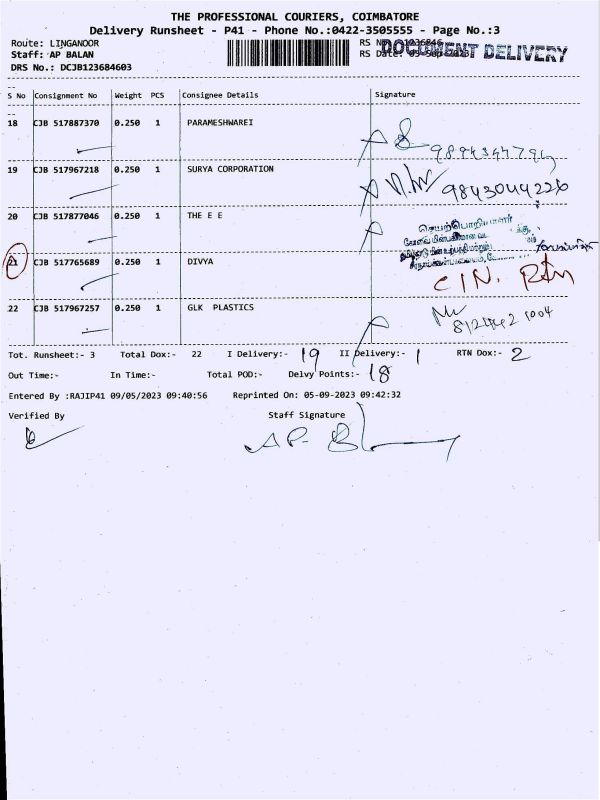 THE PROFESSIONAL COURIERS, COIMBATORE
Delivery Runsheet - P41 - Phone No.:0422-3505555 - Page No.:3
Route: LINGANOOR
Staff: AP BALAN
DRS No.: DCJB123684603
RS No.: 1236846
RS Date: 05-Sep-2023
DOCUMENT DELIVERY
S No Consignment No Weight PCS Consignee Details Signature
18 CJB 517887370 0.250 1 PARAMESHWAREI
19 CJB 517967218 0.250 1 SURYA CORPORATION 9843044226
20 CJB 517877046 0.250 1 THE E E செயற்பொறியாளர்
CJB 517765689 0.250 1 DIVYA
22 CJB 517967257 0.250 1 GLK PLASTICS
Tot. Runsheet:- 3 Total Dox:- 22 I Delivery:- 19 II Delivery:- 1 RTN Dox:- 2
Out Time:- In Time:- Total POD:- Delvy Points:- 18
Entered By :RAJIP41 09/05/2023 09:40:56 Reprinted On: 05-09-2023 09:42:32
Verified By Staff Signature